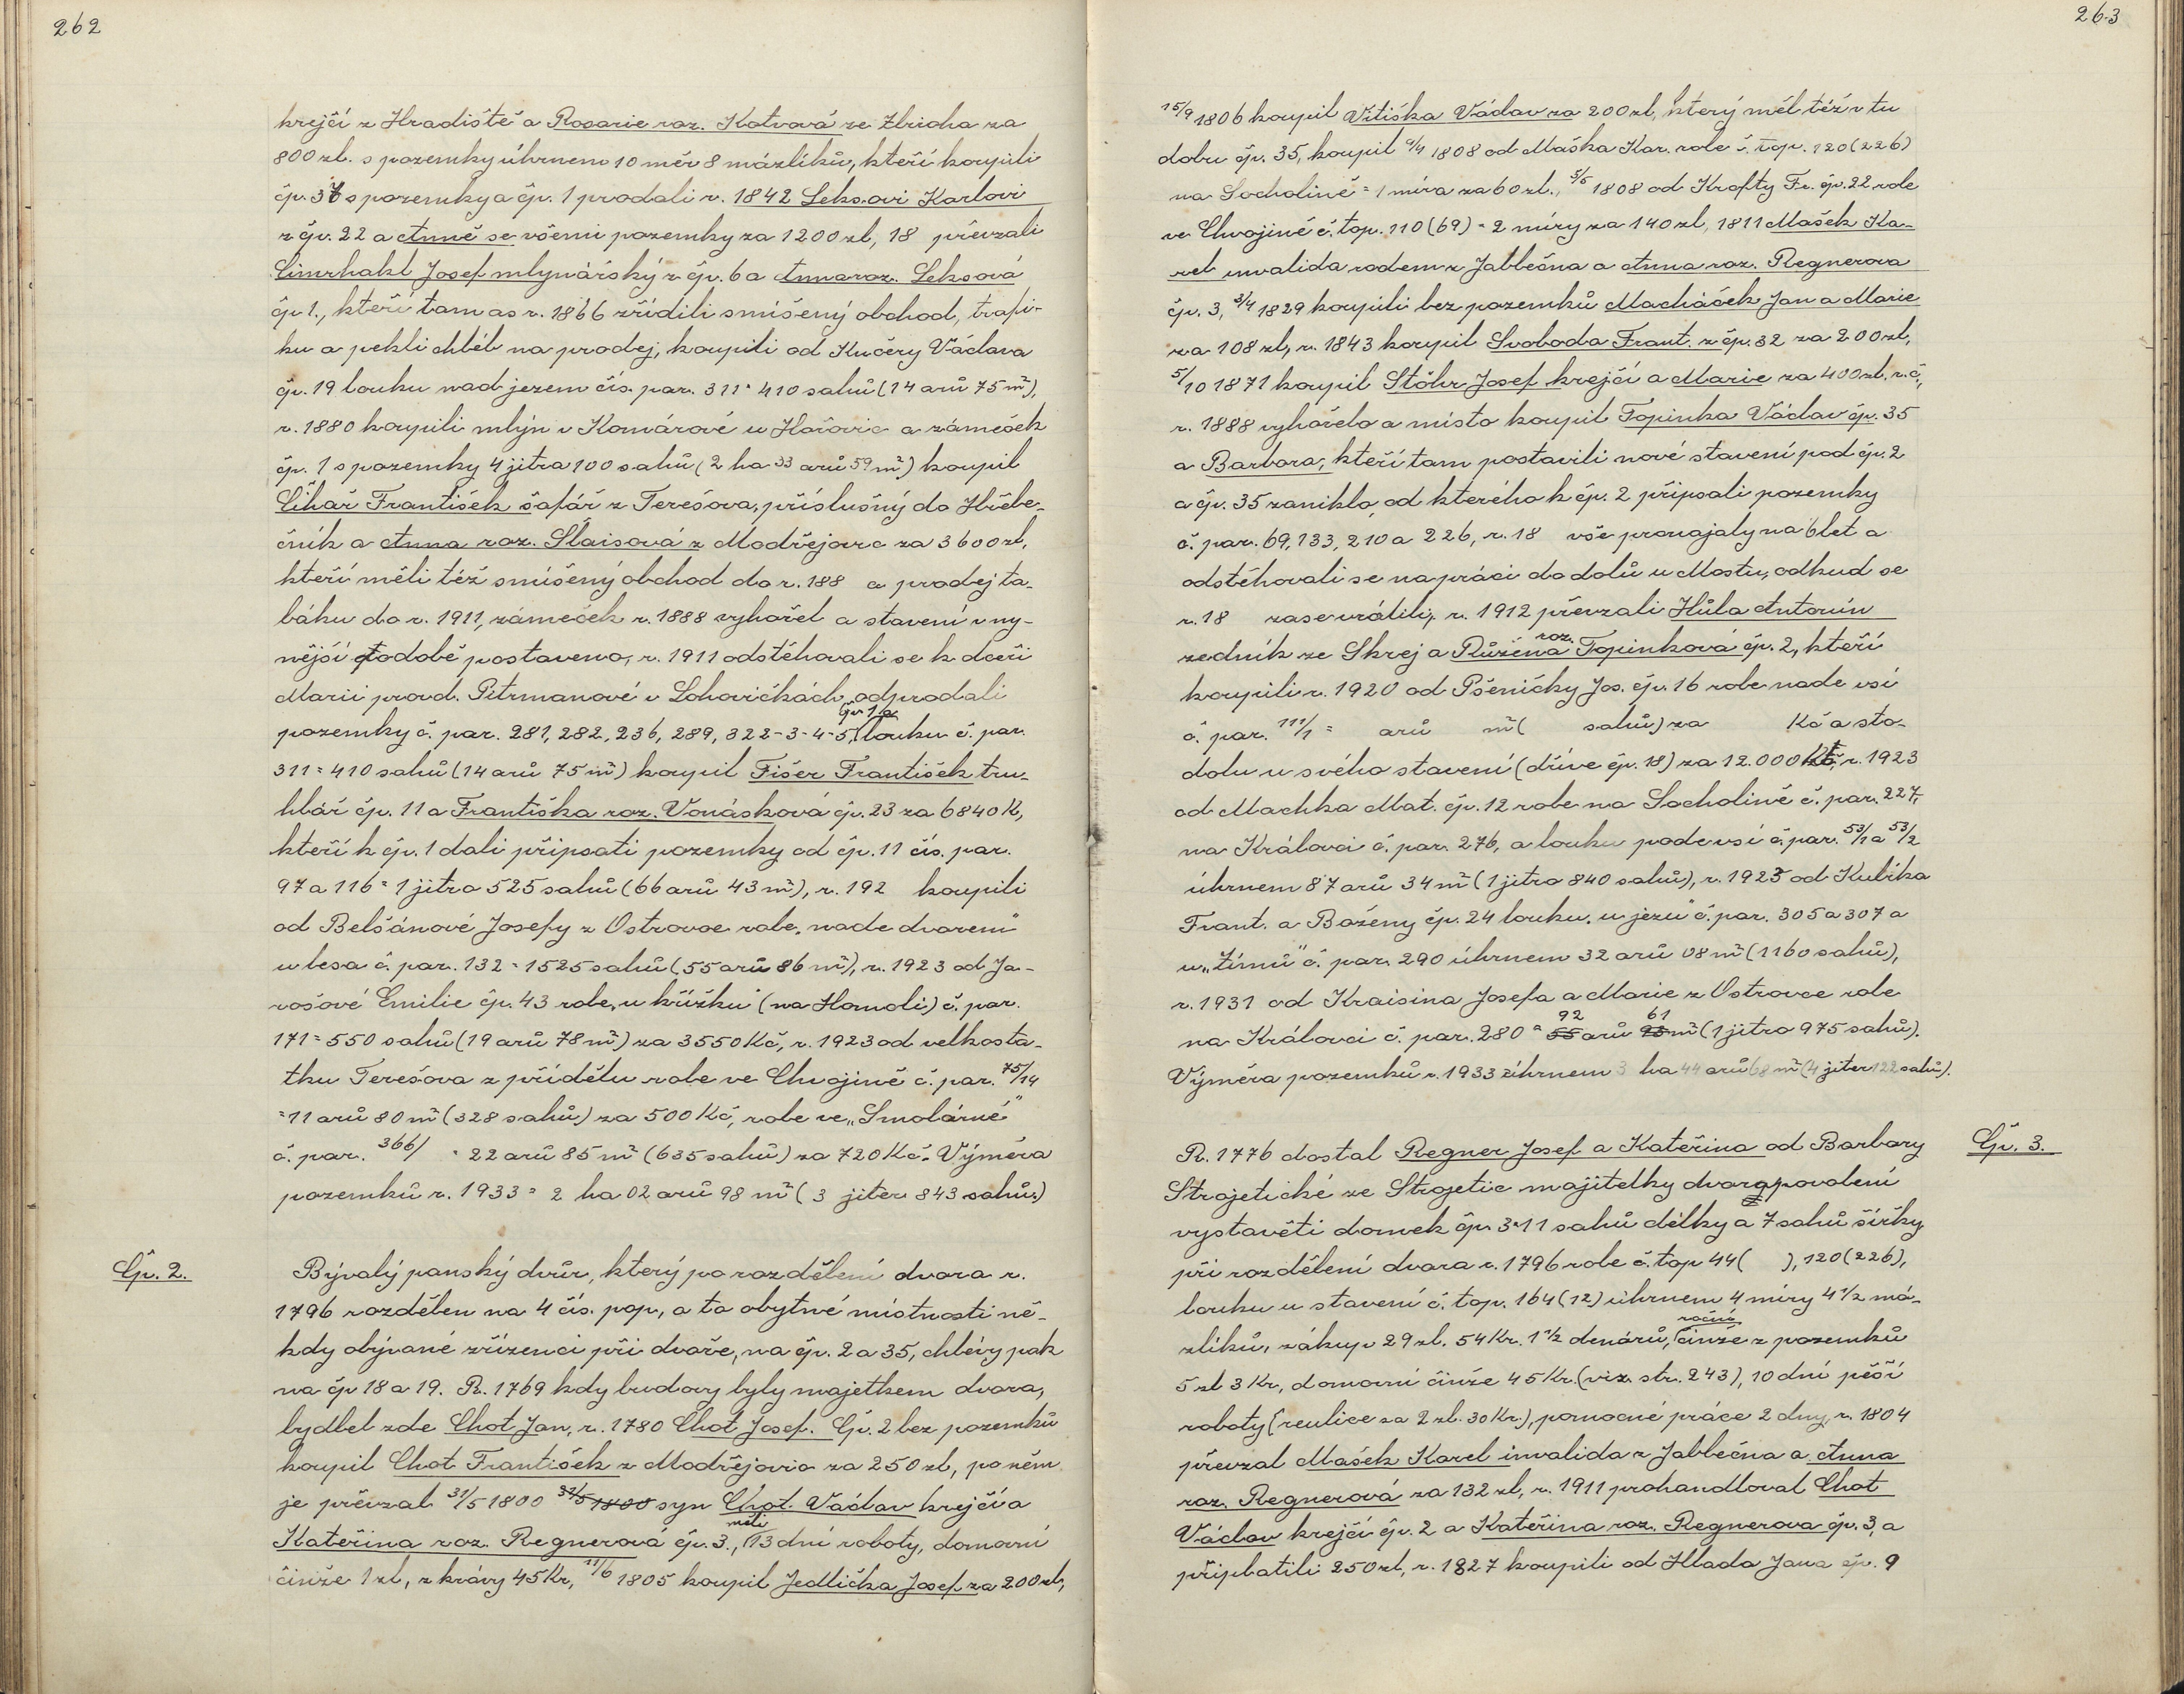 262
krejčí z Hradiště a Rosarie roz. Kotvová ze Zbiroha za
800 zl. s pozemky úhrnem 10 měr 8 mázlíků, kteří koupili
čp. 37 s pozemky a čp. 1 prodali r. 1842 Leksovi Karlovi
z čp. 22 a Anně se všemi pozemky za 1200 zl, 18 převzali
Cimrhakl Josef mlynářský z čp. 6 a Anna roz. Leksová
čp 1., kteří tam as r. 1866 zřídili smíšený obchod, trafi-
ku a pekli chléb na prodej, koupili od Kučery Václava
čp. 19 louku nad jezem čís. par. 311 = 410 sahů (14 arů 75 m²),
r. 1880 koupili mlýn v Komárově u Hořovic a zámeček
čp. 1 s pozemky 4 jitra 100 sahů (2 ha 33 arů 59 m²) koupil
Cihař František šafář z Terešova, příslušný do Hřebe-
čník a Anna roz. Šlaisová z Modřejovic za 3600 zl,
kteří měli též smíšený obchod do r. 188 a prodej ta-
báku do r. 1911, zámeček r. 1888 vyhořel a stavení v ny-
nější podobě postaveno, r. 1911 odstěhovali se k dceři
Marii provd. Pitrmanové v Lohovičkách, odprodali
pozemky č. par. 281, 282, 236, 289, 322-3-4-5, čp 1 a louku č. par.
311 = 410 sahů (14 arů 75 m²) koupil Fišer František tru-
hlář čp. 11 a Františka roz. Vonásková čp. 23 za 6840 K,
kteří k čp. 1 dali připsati pozemky od čp. 11 čís. par.
97 a 116 = 1 jitro 525 sahů (66 arů 43 m²), r. 192 koupili
od Belšánové Josefy z Ostrovce role „nade dvorem"
u lesa č. par. 132 = 1525 sahů (55 arů 86 m²), r. 1923 od Ja-
rošové Emilie čp. 43 role „u křížku" (na Homoli) č. par.
171 = 550 sahů (19 arů 78 m²) za 3550 Kč, r. 1923 od velkosta-
tku Terešova z přídělu role ve Chvojině č. par. 75/14
= 11 arů 80 m² (328 sahů) za 500 Kč, role ve „Smolárně"
č. par. 366/ = 22 arů 85 m² (635 sahů) za 720 Kč. Výměra
pozemků r. 1933 = 2 ha 02 arů 98 m² (3 jiter 843 sahů.)
Čp. 2.
Bývalý panský dvůr, který po rozdělení dvora r.
1796 rozdělen na 4 čís. pop, a to obytné místnosti ně-
kdy obývané zřízenci při dvoře, na čp. 2 a 35, chlévy pak
na čp 18 a 19. R. 1769 kdy budovy byly majetkem dvora,
bydlel zde Chot Jan, r. 1780 Chot Josef. Čp. 2 bez pozemků
koupil Chot František z Modřejovic za 250 zl, po něm
je převzal 31/5 1800 31/5 1800 syn Chot Václav krejčí a
Kateřina roz. Regnerová čp. 3., měli 13 dní roboty, domovní
činže 1 zl, z krávy 45 Kr, 11/6 1805 koupil Jedlička Josef za 200 zl,
263
15/9 1806 koupil Vitiska Václav za 200 zl, který měl též v tu
dobu čp. 35, koupil 4/4 1808 od Maška Kar. role č. top. 120 (226)
na Socholině = 1 míra za 60 zl., 5/5 1808 od Krofty Fr. čp. 22 role
ve Chvojině č. top. 110 (69) = 2 míry za 140 zl, 1811 Mašek Ka-
rel invalida rodem z Jablečna a Anna roz. Regnerova
čp. 3, 3/4 1829 koupili bez pozemků Macháček Jan a Marie
za 108 zl, r. 1843 koupil Svoboda Frant. z čp. 32 za 200 zl,
5/10 1871 koupil Stöhr Josef krejčí a Marie za 400 zl. r. č.,
r. 1888 vyhořelo a místo koupil Topinka Václav čp. 35
a Barbora, kteří tam postavili nové stavení pod čp. 2
a čp. 35 zaniklo, od kterého k čp. 2 připsali pozemky
č. par. 69, 133, 210 a 226, r. 18 vše pronajaly na 6 let a
odstěhovali se na práci do dolů u Mostu, odkud se
r. 18 zase vrátili, r. 1912 převzali Hůla Antonín
zedník ze Skrej a Růžena roz. Topinková čp. 2, kteří
koupili r. 1920 od Pšeničky Jos. čp. 16 role nade vsí
č. par. 111/1 = arů m² ( sahů) za Kč a sto-
dolu u svého stavení (dříve čp. 18) za 12.000 Kč, r. 1923
od Machka Mat. čp. 12 role na Socholině č. par. 227,
na Královci č. par. 276, a louku pode vsí č. par. 53/1 a 53/2
úhrnem 87 arů 34 m² (1 jitro 840 sahů), r. 1925 od Kulíka
Frant. a Boženy čp. 24 louku „u jezu" č. par. 305 a 307 a
u „Zímů" č. par. 290 úhrnem 32 arů 08 m² (1160 sahů),
r. 1931 od Kraisina Josefa a Marie z Ostrovce role
na Královci č. par. 280 = 55 92 arů 61 m² (1 jitro 975 sahů).
Výměra pozemků r. 1933 úhrnem 3 ha 44 arů 68 m² (4 jiter 122 sahů).
Čp. 3.
R. 1776 dostal Regner Josef a Kateřina od Barbary
Strojetické ze Strojetic majitelky dvora povolení
vystavěti domek čp. 3 = 11 sahů délky a 7 sahů šířky
při rozdělení dvora r. 1796 role č. top 44 ( ), 120 (226),
louku u stavení č. top. 164 (12) úhrnem 4 míry 4 1/2 má-
zlíků, zákup 29 zl. 54 Kr. 1 1/2 denárů, roční činže z pozemků
5 zl 3 Kr, domovní činže 45 Kr. (viz. str. 243), 10 dní pěší
roboty (reulice za 2 zl. 30 Kr.), pomocné práce 2 dny, r. 1804
převzal Mašek Karel invalida z Jablečna a Anna
roz. Regnerová za 132 zl, r. 1911 prohandloval Chot
Václav krejčí čp. 2 a Kateřina roz. Regnerova čp. 3, a
připlatili 250 zl, r. 1827 koupili od Hlada Jana čp. 9